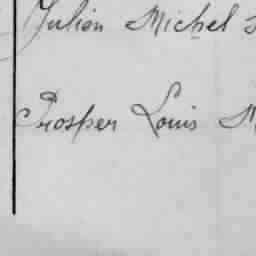 Julien Michel
Prosper Louis